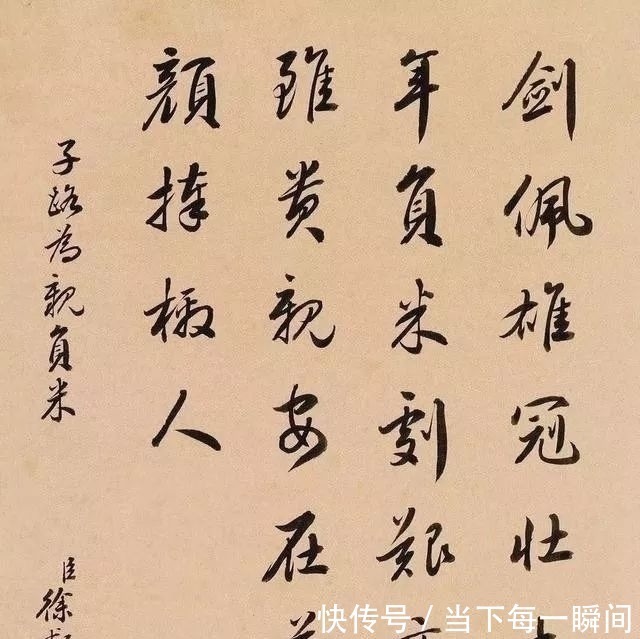 劍佩雄冠壯
年負米劇艱
雖貴親安在
顏捧檄人
子路為親負米
臣徐
快传号 / 当下每一瞬间